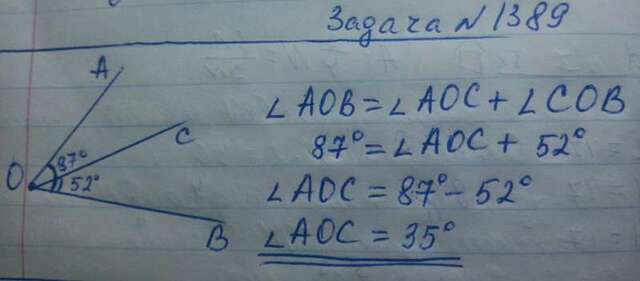 Задача N 1389
A
C
O
87°
52°
B
∠AOB = ∠AOC + ∠COB
87° = ∠AOC + 52°
∠AOC = 87° - 52°
∠AOC = 35°